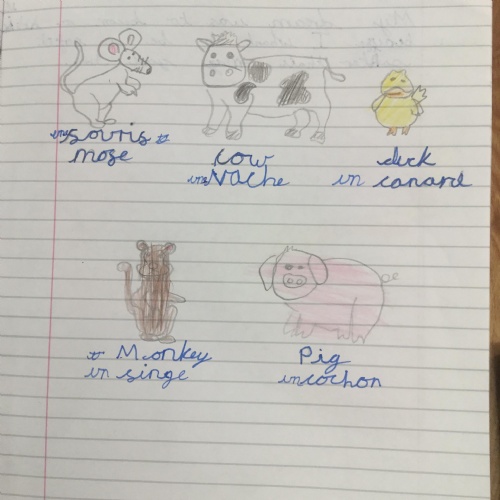 souris
mose
cow
Vache
duck
in canard
Monkey
in singe
Pig
in cochon